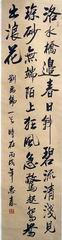 洛水橋邊春日斜碧流清淺見
瓊砂無端陌上狂風急驚起鴛鴦
出浪花 劉禹錫 一 時在丙 年